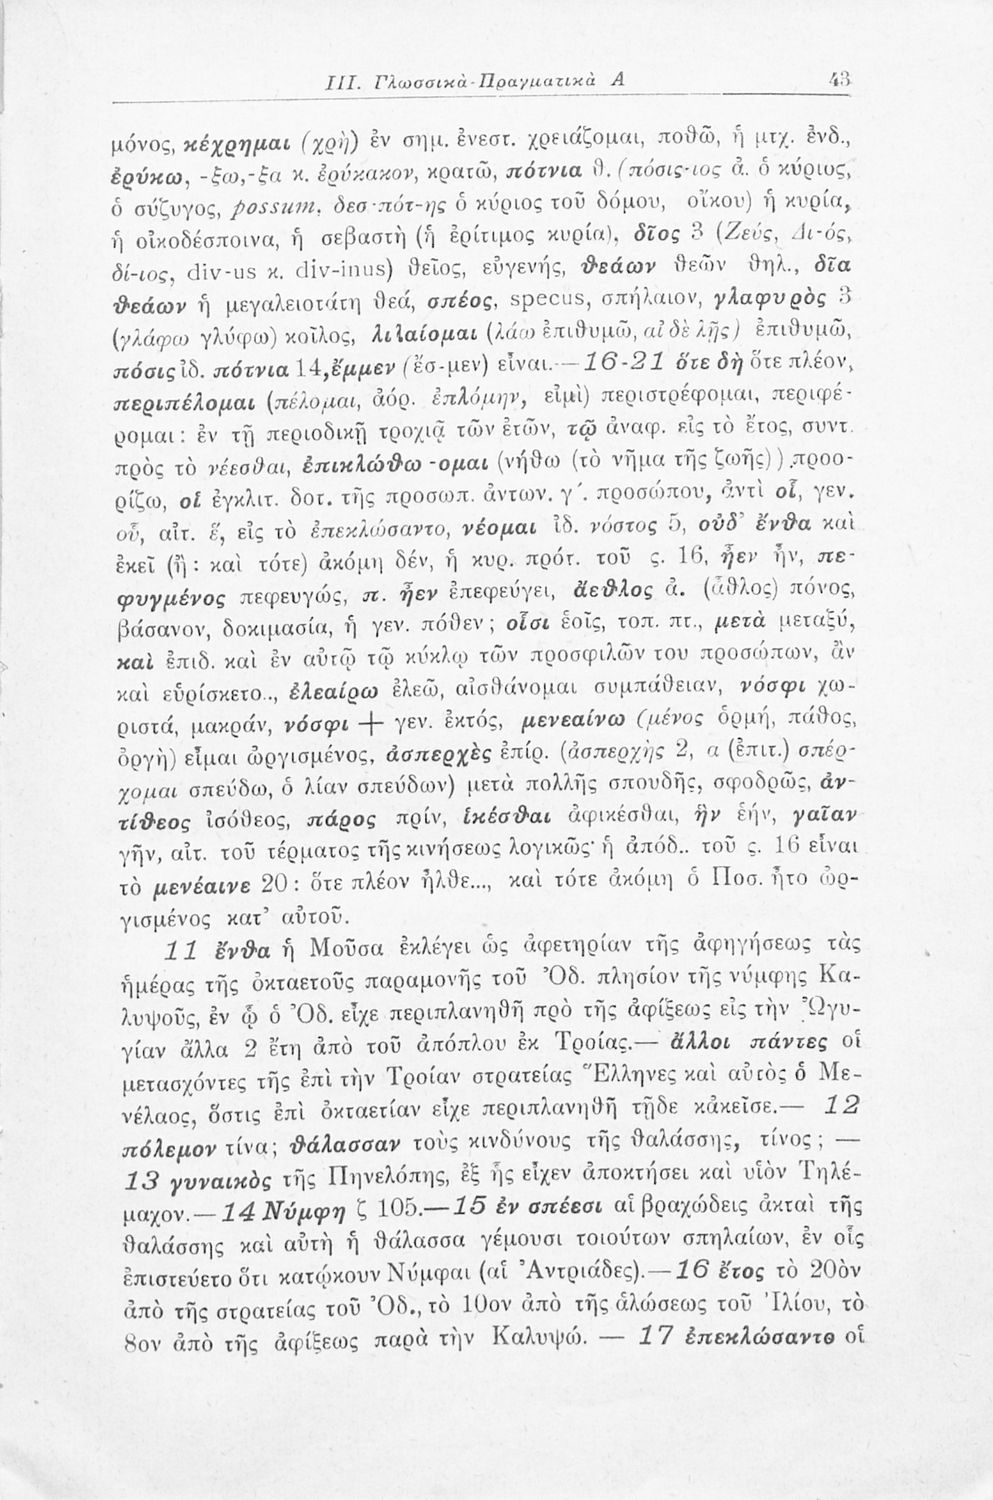 III. Γλωσσικὰ-Πραγματικὰ Α 43
μόνος, κέχρημαι (χρὴ) ἐν σημ. ἐνεστ. χρειάζομαι, ποθῶ, ἡ μτχ. ἐνδ.,
ἐρύκω, -ξω,-ξα κ. ἐρύκακον, κρατῶ, πότνια θ. (πόσις-ιος ἀ. ὁ κύριος,
ὁ σύζυγος, possum, δεσ-πότ-ης ὁ κύριος τοῦ δόμου, οἴκου) ἡ κυρία,
ἡ οἰκοδέσποινα, ἡ σεβαστὴ (ἡ ἐρίτιμος κυρία), δῖος 3 (Ζεύς, Δι-ός,
δί-ιος, div-us κ. div-inus) θεῖος, εὐγενής, θεάων θεῶν θηλ., δῖα
θεάων ἡ μεγαλειοτάτη θεά, σπέος, specus, σπήλαιον, γλαφυρὸς 3
(γλάφω γλύφω) κοῖλος, λιλαίομαι (λάω ἐπιθυμῶ, αἰ δὲ λῇς) ἐπιθυμῶ,
πόσις ἰδ. πότνια 14, ἔμμεν (ἔσ-μεν) εἶναι.—16-21 ὅτε δὴ ὅτε πλέον,
περιπέλομαι (πέλομαι, ἀόρ. ἐπλόμην, εἰμὶ) περιστρέφομαι, περιφέ-
ρομαι: ἐν τῇ περιοδικῇ τροχιᾷ τῶν ἐτῶν, τῷ ἀναφ. εἰς τὸ ἔτος, συντ.
πρὸς τὸ νέεσθαι, ἐπικλώθω -ομαι (νήθω (τὸ νῆμα τῆς ζωῆς)) προο-
ρίζω, οἱ ἐγκλιτ. δοτ. τῆς προσωπ. ἀντων. γ΄. προσώπου, ἀντὶ οἷ, γεν.
οὗ, αἰτ. ἕ, εἰς τὸ ἐπεκλώσαντο, νέομαι ἰδ. νόστος 5, οὐδ' ἔνθα καὶ
ἐκεῖ (ἢ: καὶ τότε) ἀκόμη δέν, ἡ κυρ. πρότ. τοῦ ς. 16, ἦεν ἦν, πε-
φυγμένος πεφευγώς, π. ἦεν ἐπεφεύγει, ἄεθλος ἀ. (ἆθλος) πόνος,
βάσανον, δοκιμασία, ἡ γεν. πόθεν; οἷσι ἑοῖς, τοπ. πτ., μετὰ μεταξύ,
καὶ ἐπιδ. καὶ ἐν αὐτῷ τῷ κύκλῳ τῶν προσφιλῶν του προσώπων, ἂν
καὶ εὑρίσκετο.., ἐλεαίρω ἐλεῶ, αἰσθάνομαι συμπάθειαν, νόσφι χω-
ριστά, μακράν, νόσφι + γεν. ἐκτός, μενεαίνω (μένος ὁρμή, πάθος,
ὀργὴ) εἶμαι ὠργισμένος, ἀσπερχὲς ἐπίρ. (ἀσπερχὴς 2, α (ἐπιτ.) σπέρ-
χομαι σπεύδω, ὁ λίαν σπεύδων) μετὰ πολλῆς σπουδῆς, σφοδρῶς, ἀν-
τίθεος ἰσόθεος, πάρος πρίν, ἱκέσθαι ἀφικέσθαι, ἣν ἑήν, γαῖαν
γῆν, αἰτ. τοῦ τέρματος τῆς κινήσεως λογικῶς· ἡ ἀπόδ.. τοῦ ς. 16 εἶναι
τὸ μενέαινε 20: ὅτε πλέον ἦλθε..., καὶ τότε ἀκόμη ὁ Ποσ. ἦτο ὠρ-
γισμένος κατ' αὐτοῦ.
11 ἔνθα ἡ Μοῦσα ἐκλέγει ὡς ἀφετηρίαν τῆς ἀφηγήσεως τὰς
ἡμέρας τῆς ὀκταετοῦς παραμονῆς τοῦ Ὀδ. πλησίον τῆς νύμφης Κα-
λυψοῦς, ἐν ᾧ ὁ Ὀδ. εἶχε περιπλανηθῆ πρὸ τῆς ἀφίξεως εἰς τὴν Ὠγυ-
γίαν ἄλλα 2 ἔτη ἀπὸ τοῦ ἀπόπλου ἐκ Τροίας.— ἄλλοι πάντες οἱ
μετασχόντες τῆς ἐπὶ τὴν Τροίαν στρατείας Ἕλληνες καὶ αὐτὸς ὁ Με-
νέλαος, ὅστις ἐπὶ ὀκταετίαν εἶχε περιπλανηθῆ τῇδε κἀκεῖσε.— 12
πόλεμον τίνα; θάλασσαν τοὺς κινδύνους τῆς θαλάσσης, τίνος; —
13 γυναικὸς τῆς Πηνελόπης, ἐξ ἧς εἶχεν ἀποκτήσει καὶ υἱὸν Τηλέ-
μαχον.—14 Νύμφη ζ 105.—15 ἐν σπέεσι αἱ βραχώδεις ἀκταὶ τῆς
θαλάσσης καὶ αὐτὴ ἡ θάλασσα γέμουσι τοιούτων σπηλαίων, ἐν οἷς
ἐπιστεύετο ὅτι κατῴκουν Νύμφαι (αἱ Ἀντριάδες).—16 ἔτος τὸ 20ὸν
ἀπὸ τῆς στρατείας τοῦ Ὀδ., τὸ 10ον ἀπὸ τῆς ἁλώσεως τοῦ Ἰλίου, τὸ
8ον ἀπὸ τῆς ἀφίξεως παρὰ τὴν Καλυψώ. — 17 ἐπεκλώσαντο οἱ